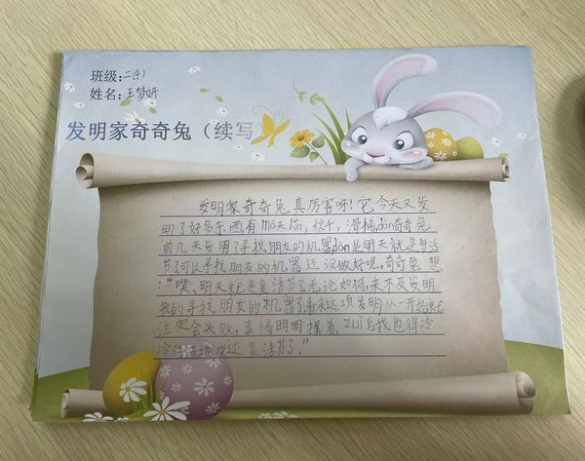 班级:二(4)
姓名:王梦妍
发明家奇奇兔（续写
发明家奇奇兔真厉害呀!它今天又发
明了好多东西有mó天lún,秋千,滑梯,dàn奇奇兔
前几天发明了寻找朋友的机器dàn是明天就是复活
节了可以寻找朋友的机器还没做好呢,奇奇兔想
:"唉,明天就是复活节了无论如何,来不及发明
我的寻找朋友的机器了看来这项发明从一开始
注定会失败,事情明明摆着,zuì后我也得冷
冷清清地度过复活节了。"